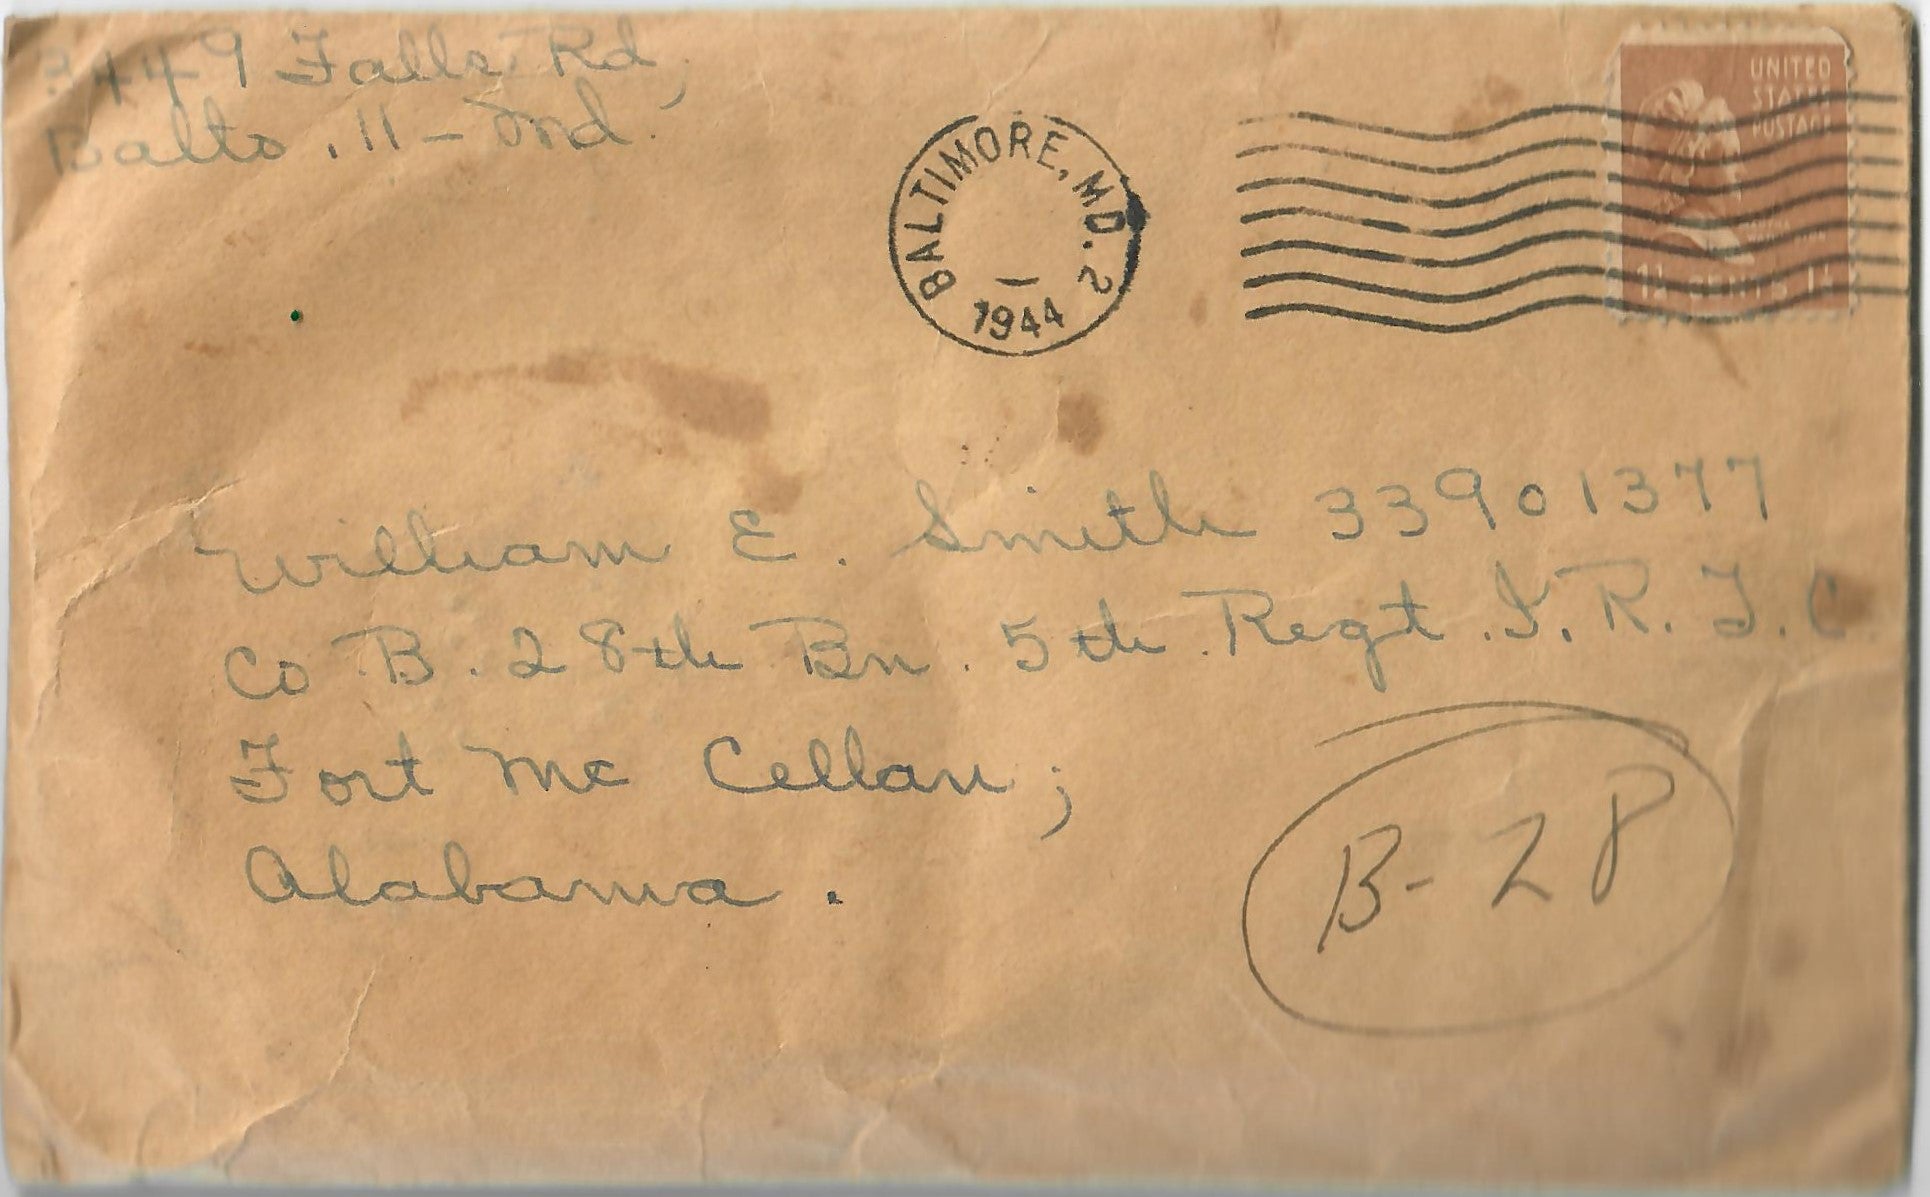 3449 Falls Rd,
Balto. 11 - Md.
BALTIMORE, MD. 2
1944
UNITED
STATES
POSTAGE
1½ CENTS 1½
William E. Smith 33901377
Co B. 28th Bn. 5th Regt. I.R.T.C
Fort Mc Cellan;
Alabama.
B-28